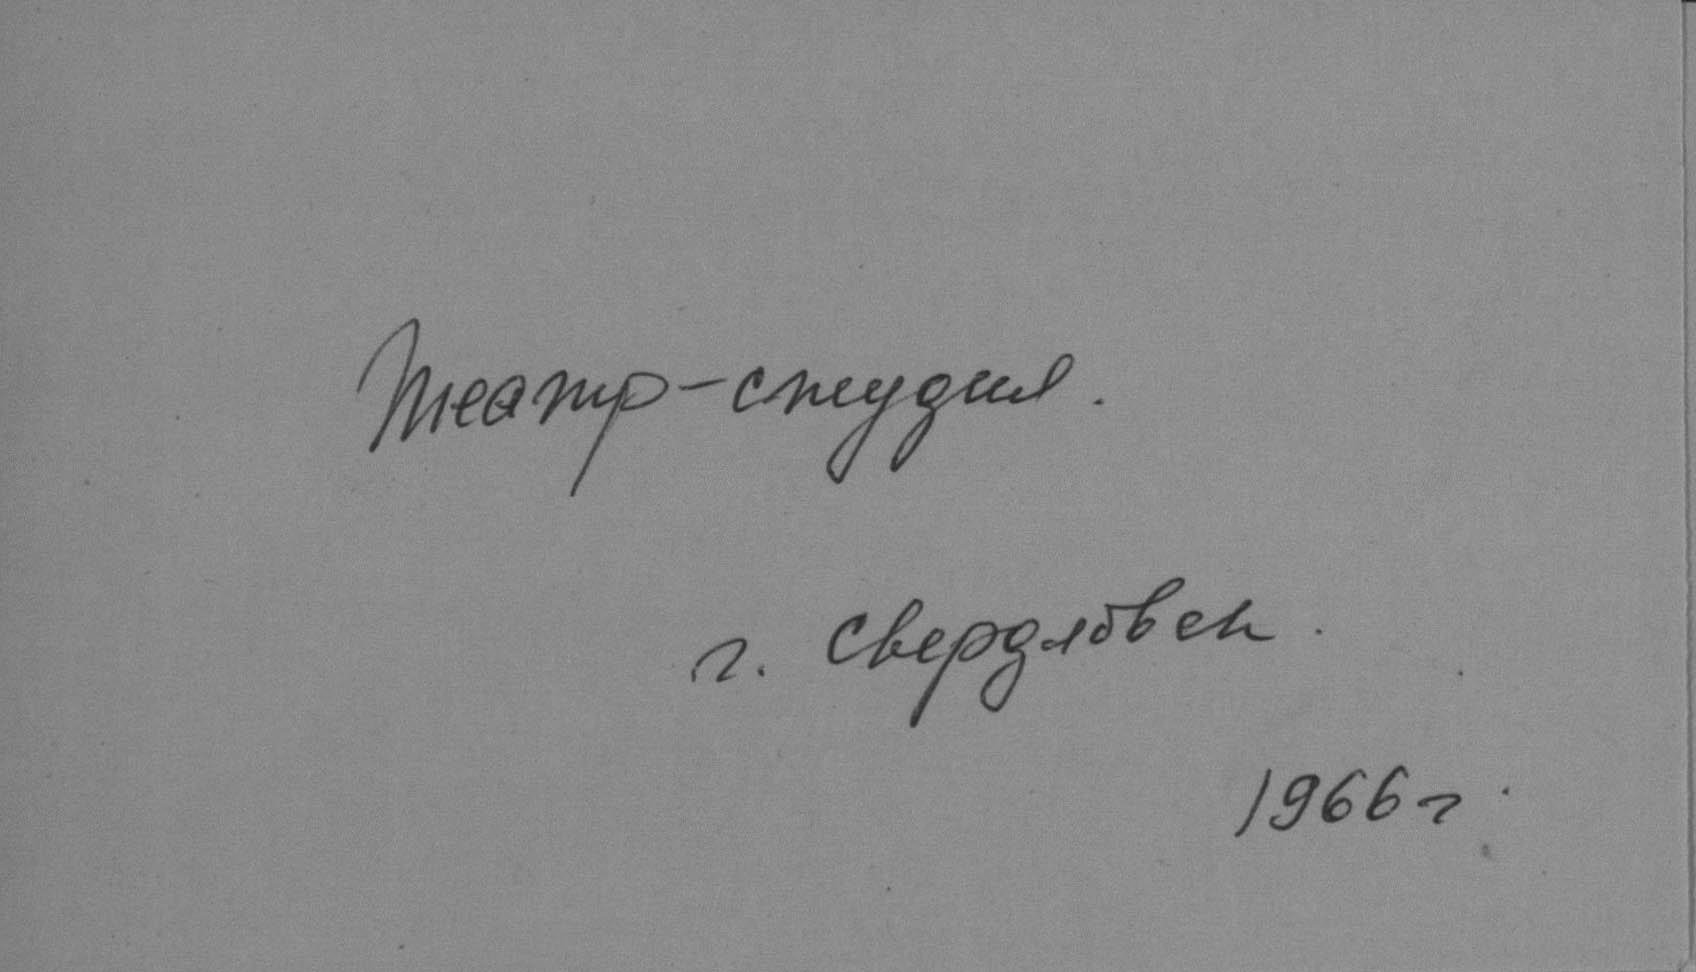 Театр-студия.
г. Свердловск.
1966 г.